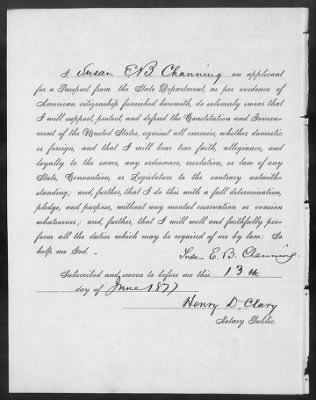 I Susan E. B. Channing an applicant
for a Passport from the State Department, as per evidence of
American citizenship furnished herewith, do solemnly swear that
I will support, protect, and defend the Constitution and Govern-
ment of the United States, against all enemies, whether domestic
or foreign, and that I will bear true faith, allegiance, and
loyalty to the same, any ordinance, resolution, or law of any
State, Convention, or Legislature to the contrary notwith-
standing; and, further, that I do this with a full determination,
pledge, and purpose, without any mental reservation or evasion
whatsoever; and, further, that I will well and faithfully per-
form all the duties which may be required of me by law. So
help me God.
Susan E. B. Channing
Subscribed and sworn to before me this 13th
day of June 1877
Henry D. Clary
Notary Public.